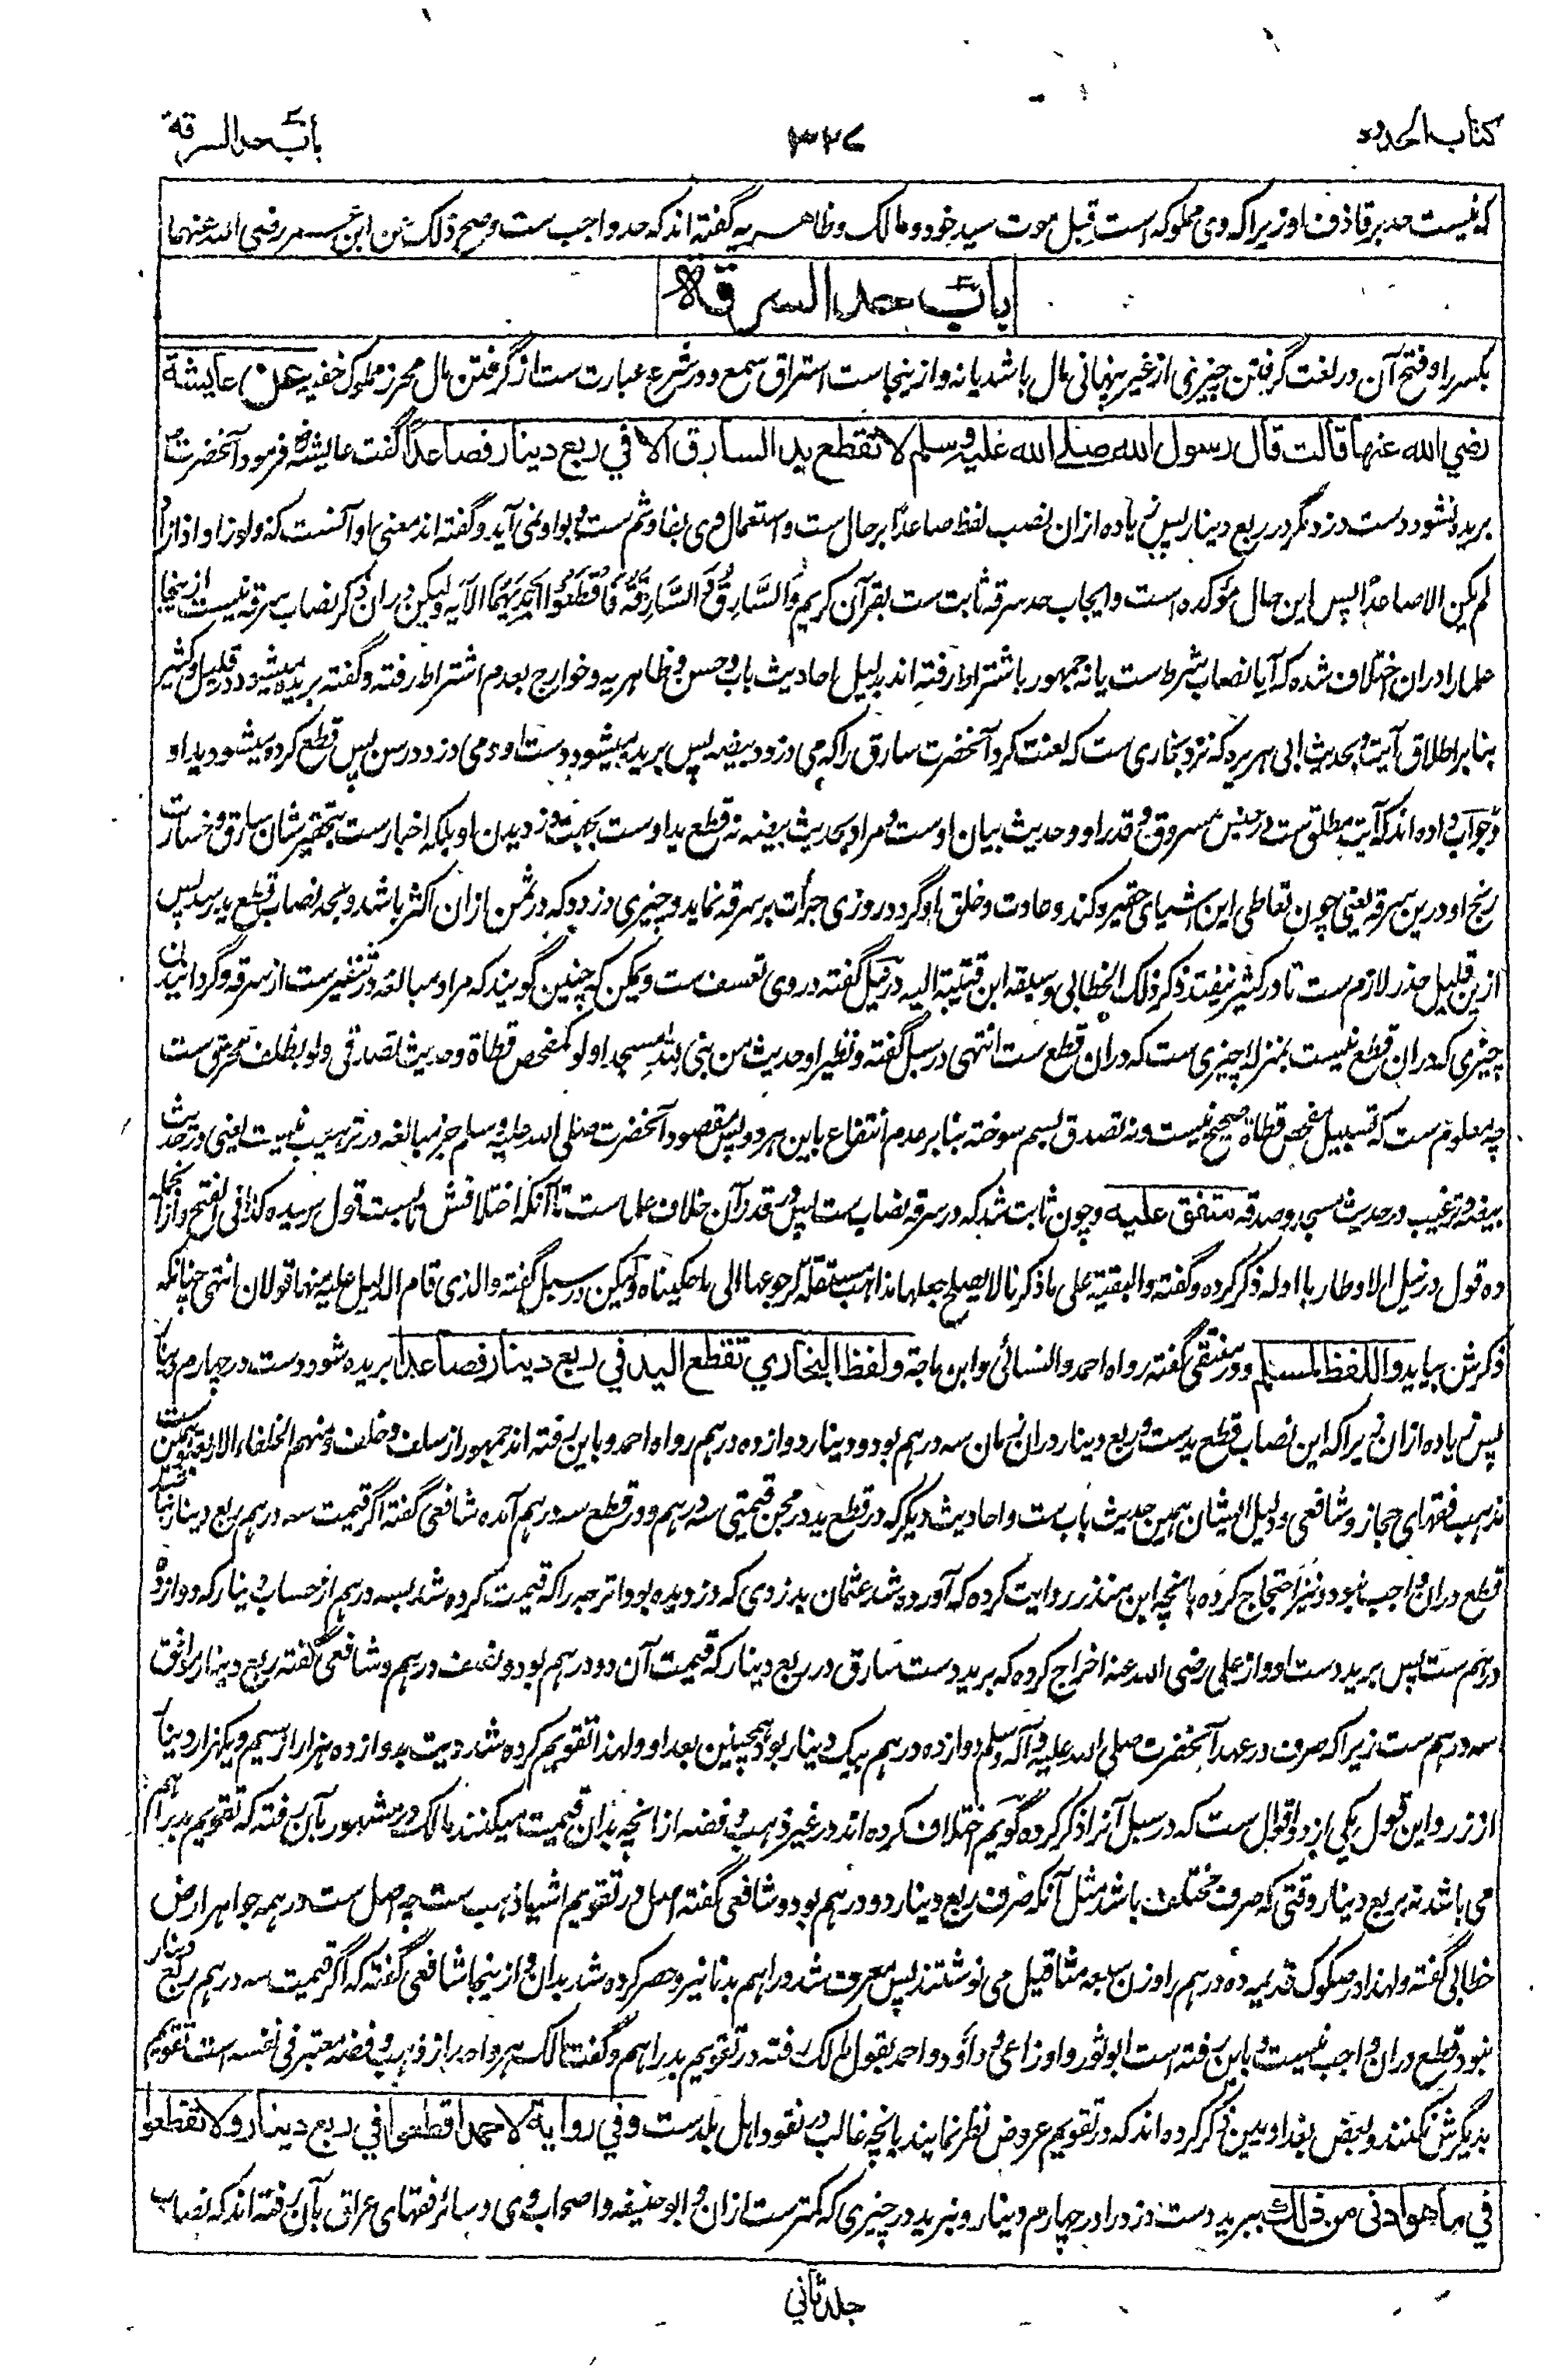 کتاب الحدود
۳۲۷
باب حد السرقة
که نیست حد بر قاذف او زیرا که وی مملوکه است قبل موت سید خود و مالک و ظاهریه گفته اند که حد واجب ست و صح ذلک عن ابن عمر رضی الله عنهما
باب حد السرقة
بکسر را و فتح آن در لغت گرفتن چیزی از غیر بنهانی مال باشد یا نه و ازینجاست استراق سمع و در شرع عبارت ست از گرفتن مال محرز مملوک خفیه عن عایشة
رضي الله عنها قالت قال رسول الله صلے الله علیه وسلم لا تقطع ید السارق الا في ربع دینار فصاعدا گفت عایشه فرمود آنحضرت
بریده نشود دست دزد مگر در ربع دینار پس زیاده ازان نصب لفظ صاعدا بر حال ست و استعمال وی بفا و ثم ست و بواو نمی آید و گفته اند معنی او آنست که ولو زاد اذا زاد
لم یکن الا صاعدا پس این حال مؤکده است و ایجاب حد سرقه ثابت ست بقرآن کریم وَالسَّارِقُ وَالسَّارِقَةُ فَاقْطَعُوا أَيْدِيَهُمَا الآیه ولیکن دران ذکر نصاب سرقه نیست ازینجا
علما را دران اختلاف شده که آیا نصاب شرط ست یا نه جمهور باشتراط رفته اند بدلیل احادیث باب و حسن و ظاهریه و خوارج بعدم اشتراط رفته و گفته بریده میشود در قلیل و کثیر
بنابر اطلاق آیت و بحدیث ابی هریره که نزد بخاری ست که لعنت کرد آنحضرت سارق را که می دزدد بیضه پس بریده میشود دست او و می دزدد رسن پس قطع کرده میشود ید او
و جواب داده اند که آیت مطلق ست در جنس مسروق و قدر او و حدیث بیان اوست و مراد بحدیث بیضه نه قطع ید اوست بجهت دزدیدن او بلکه اخبارست بتحقیر شان سارق و خسارت
ربح او درین سرقه یعنی چون تعاطی این اشیای حقیره کند و عادت و خلق او گردد روزی جرأت بر سرقه نماید و چیزی دزدد که در ثمن ازان اکثر باشد و بحد نصاب قطع ید برسد پس
ازین قلیل حذر لازم ست تا در کثیر نیفتد ذکر ذلک الخطابی و سبقه ابن قتیبة الیه در نیل گفته در وی تعسف ست و یمکن که چنین گویند که مراد مبالغه در تنفیرست از سرقه و گردانیدن
چیزی که دران قطع نیست بمنزله چیزی ست که دران قطع ست انتهی در سبل گفته و نظیر او حدیث من بنی لله مسجدا و لو کمفحص قطاة و حدیث تصدقی ولو بظلف محرق ست
چه معلوم ست که تسبیل مفحص قطاة صحیح نیست و نه تصدق بسم سوخته بنابر عدم انتفاع باین هر دو پس مقصود آنحضرت صلی الله علیه و سلم جز مبالغه در ترهیب نیست یعنی در حدیث
بیضه و ترغیب در حدیث مسجد و صدقه متفق علیه و چون ثابت شد که در سرقه نصاب ست پس در قدر آن خلاف علماست تا آنکه اختلافش تا بست قول رسیده کذا فی الفتح و ازانجمله
ده قول در نیل الاوطار با ادله ذکر کرده و گفته والبقیة علی ما ذکرنا لا یصلح جعلها مذاهب مستقلة لرجوعها الی ما حکیناه ولیکن در سبل گفته والذی قام الدلیل علیه منها قولان انتهی چنانکه
ذکرش بیاید واللفظ لمسلم و در منتقی گفته رواه احمد والنسائی وابن ماجة ولفظ البخاري تقطع الید في ربع دینار فصاعدا بریده شود دست در چهارم دینار
پس زیاده ازان زیرا که این نصاب قطع یدست و ربع دینار دران زمان سه درهم بود و دینار دوازده درهم رواه احمد و باین رفته اند جمهور از سلف و خلف و منهم الخلفاء الاربعة و همین ست
مذهب فقهای حجاز و شافعی و دلیل ایشان همین حدیث باب ست و احادیث دیگر که در قطع ید در مجن قیمتی سه درهم و در قطع سه درهم آمده شافعی گفته اگر قیمت سه درهم ربع دینار نباشد
قطع دران واجب نبود و نیز احتجاج کرده بانچه ابن منذر روایت کرده که آورده شد عثمان بدزدی که دزدیده بود اترجه را که قیمت کرده شد بسه درهم از حساب دینار که دوازده
درهم ست پس برید دست او و از علی رضی الله عنه اخراج کرده که برید دست سارق در ربع دینار که قیمت آن دو درهم بود و نصف درهم و شافعی گفته ربع دینار موافق
سه درهم ست زیرا که صرف در عهد آنحضرت صلی الله علیه و آله وسلم دوازده درهم بیک دینار بود همچنین بعد او و لهذا تقویم کرده شد دیت بدوازده هزار از سیم و یکهزار دینار
از زر و این قول یکی از دو اقوال ست که در سبل آنرا ذکر کرده گویم اختلاف کرده اند در غیر ذهب و فضه از انچه بدان قیمت میکنند مالک در مشهور بآن رفته که تقویم بدراهم
می باشد نه بربع دینار وقتی که صرف مختلف باشد مثل آنکه صرف ربع دینار دو درهم بود و شافعی گفته اصل در تقویم اشیا ذهب ست چه اصل ست در همه جواهر ارض
خطابی گفته و لهذا در صکوک قدیمه ده درهم را وزن سبعه مثاقیل می نوشتند پس معرفت شد دراهم بدنانیر و حصر کرده شد بدان و ازینجا شافعی گفته که اگر قیمت سه درهم ربع دینار
نبود قطع دران واجب نیست و باین رفته است ابوثور و اوزاعی و داود و احمد بقول مالک رفته در تقویم بدراهم و گفت مالک هر واحد از ذهب و فضه معتبر فی نفسه است تقویم
بدیگرش نکنند و بعض بغدادیین ذکر کرده اند که در تقویم عروض نظر نمایند بانچه غالب در نقود اهل بلدست وفي رواية لاحمد اقطعوا في ربع دینار ولا تقطعوا
في ما هو ادنی من ذلك ببرید دست دزد را در چهارم دینار و نبرید در چیزی که کمترست ازان و ابو حنیفه و اصحاب وی و سائر فقهای عراق بآن رفته اند که نصاب
جلد ثاني